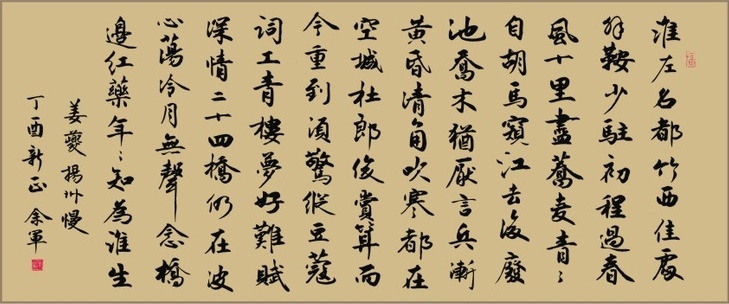 淮左名都竹西佳處
解鞍少駐初程過春
風十里盡薺麥青〻
自胡馬窺江去後廢
池喬木猶厭言兵漸
黃昏清角吹寒都在
空城杜郎俊賞算而
今重到須驚縱豆蔻
詞工青樓夢好難賦
深情二十四橋仍在波
心蕩冷月無聲念橋
邊紅藥年〻知為誰生
姜夔揚州慢
丁酉新正 余軍